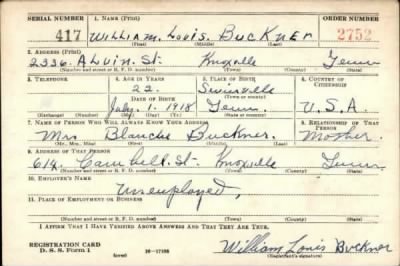 SERIAL NUMBER 1. NAME (Print) ORDER NUMBER
417 WILLIAM. LOUIS. BUCKNER 2752
(First) (Middle) (Last)
2. ADDRESS (Print)
2336. ALVIN. ST. Knoxville Tenn
(Number and street or R. F. D. number) (Town) (County) (State)
3. TELEPHONE 4. AGE IN YEARS 5. PLACE OF BIRTH 6. COUNTRY OF CITIZENSHIP
22.
DATE OF BIRTH (Town or county)
July. 1. 1918 Tenn. U.S.A.
(Exchange) (Number) (Mo.) (Day) (Yr.) (State or country)
7. NAME OF PERSON WHO WILL ALWAYS KNOW YOUR ADDRESS 8. RELATIONSHIP OF THAT PERSON
Mrs Blanche Buckner. Mother.
(Mr., Mrs., Miss) (First) (Middle) (Last)
9. ADDRESS OF THAT PERSON
Campbell. St. Knoxville Tenn.
(Number and street or R. F. D. number) (Town) (County) (State)
10. EMPLOYER'S NAME
Unemployed,
11. PLACE OF EMPLOYMENT OR BUSINESS
(Number and street or R. F. D. number) (Town) (County) (State)
I AFFIRM THAT I HAVE VERIFIED ABOVE ANSWERS AND THAT THEY ARE TRUE.
REGISTRATION CARD
D. S. S. Form 1 (over) William Louis Buckner
(Registrant's signature)